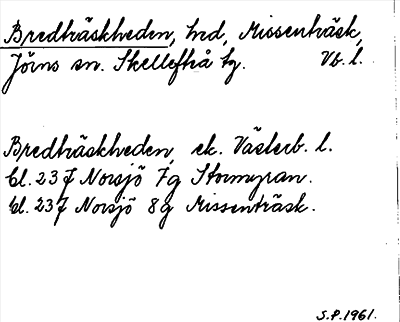 Bredträskheden, hed, Missenträsk,
Jörns sn. Skellefteå tg. Vb. l.
Bredträskheden, ek. Västerb. l.
Bl. 23J Norsjö 7g Stormyran.
Bl. 23J Norsjö 8g Missenträsk.
S.P. 1961.